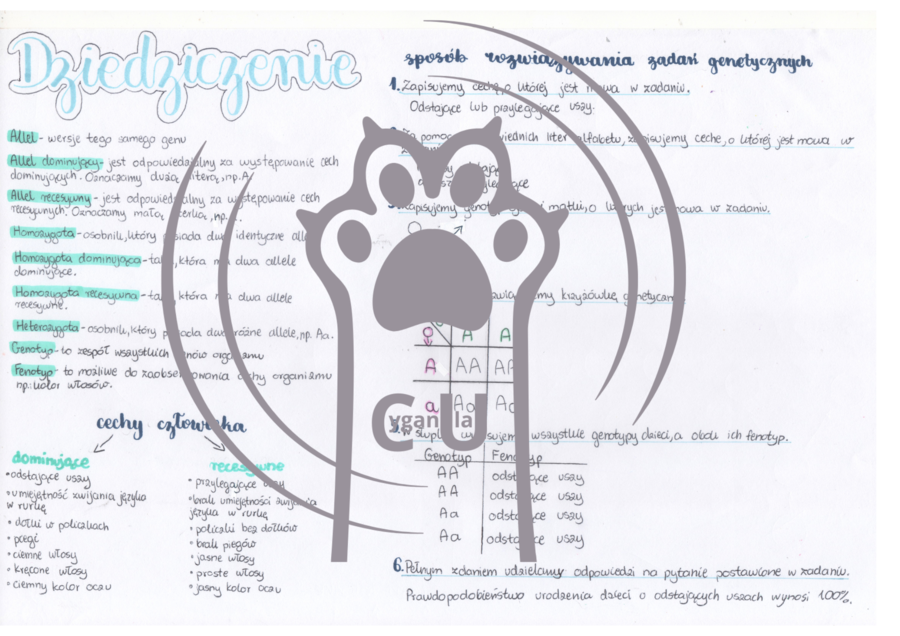 Dziedziczenie
Allel - wersje tego samego genu
Allel dominujący - jest odpowiedzialny za występowanie cech
dominujących. Oznaczamy dużą literą, np. A
Allel recesywny - jest odpowiedzialny za występowanie cech
recesywnych. Oznaczamy małą literką, np.
Homozygota - osobnik, który posiada dwa identyczne
Homozygota dominująca - która ma dwa allele
dominujące.
Homozygota recesywna - która ma dwa allele
recesywne.
Heterozygota - osobnik, który posiada dwa różne allele, np. Aa.
Genotyp - to zespół wszystkich genów organizmu
Fenotyp - to możliwe do zaobserwowania cechy organizmu
np.: kolor włosów.
cechy człowieka
dominujące
• odstające uszy
• umiejętność zwijania języka
w rurkę
• dołki w policzkach
• piegi
• ciemne włosy
• kręcone włosy
• ciemny kolor oczu
recesywne
• przylegające uszy
• brak umiejętności zwijania
języka w rurkę
• policzki bez dołków
• brak piegów
• jasne włosy
• proste włosy
• jasny kolor oczu
sposób rozwiązywania zadań genetycznych
1. Zapisujemy cechę, o której jest mowa w zadaniu.
Odstające lub przylegające uszy.
pomocą odpowiednich liter alfabetu, zapisujemy cechę, o której jest mowa w
Zapisujemy i matki, o których jest mowa w zadaniu.
krzyżówkę genetyczną
♀ A A
A AA
a
CU
yganla
wszystkie genotypy dzieci, a obok ich fenotyp.
Genotyp Fenotyp
AA odstające uszy
AA odstające uszy
Aa odstające uszy
Aa odstające uszy
6. Pełnym zdaniem udzielamy odpowiedzi na pytanie postawione w zadaniu.
Prawdopodobieństwo urodzenia dzieci o odstających uszach wynosi 100%.